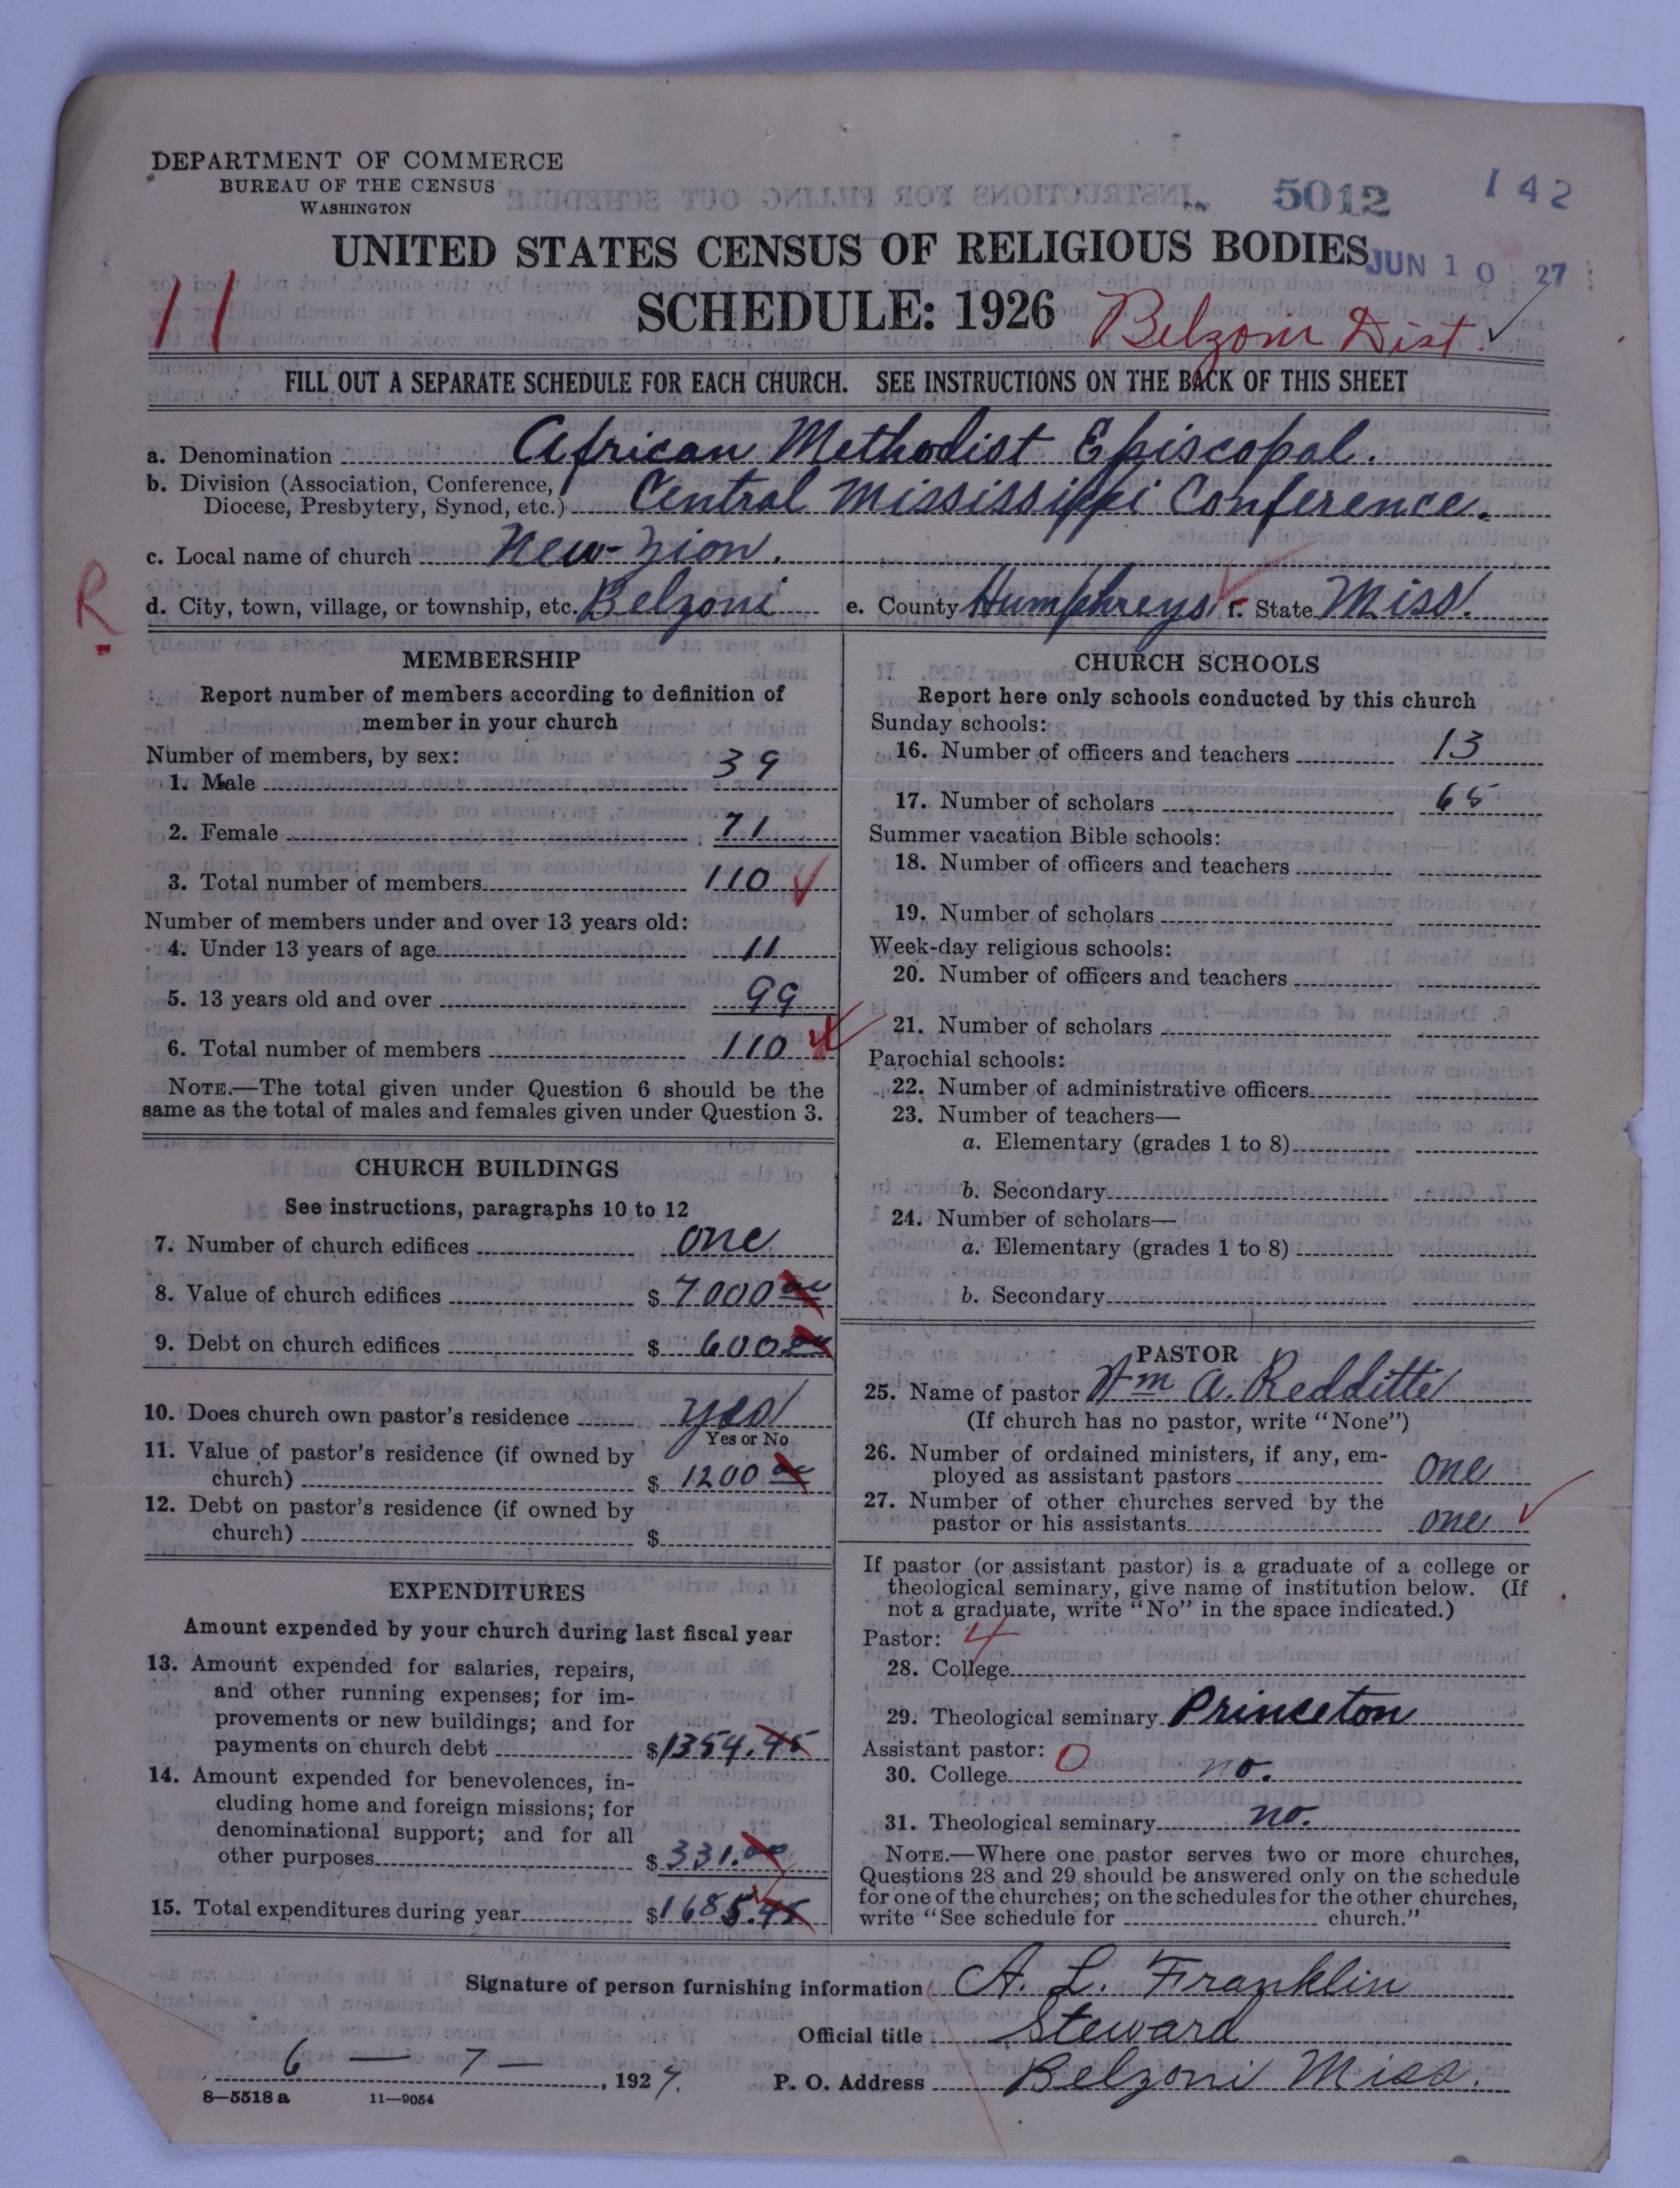 DEPARTMENT OF COMMERCE
BUREAU OF THE CENSUS
WASHINGTON
5012
142
UNITED STATES CENSUS OF RELIGIOUS BODIES
JUN 10 27
11
SCHEDULE: 1926
Belzoni Dist. ✓
FILL OUT A SEPARATE SCHEDULE FOR EACH CHURCH. SEE INSTRUCTIONS ON THE BACK OF THIS SHEET
a. Denomination African Methodist Episcopal.
b. Division (Association, Conference,
Diocese, Presbytery, Synod, etc.) Central Mississippi Conference.
c. Local name of church New-Zion.
R
d. City, town, village, or township, etc. Belzoni e. County Humphreys f. State Miss.
MEMBERSHIP
Report number of members according to definition of
member in your church
Number of members, by sex:
1. Male 39
2. Female 71
3. Total number of members 110 ✓
Number of members under and over 13 years old:
4. Under 13 years of age 11
5. 13 years old and over 99
6. Total number of members 110
NOTE.—The total given under Question 6 should be the
same as the total of males and females given under Question 3.
CHURCH BUILDINGS
See instructions, paragraphs 10 to 12
7. Number of church edifices one
8. Value of church edifices $ 7000 00
9. Debt on church edifices $ 600 00
10. Does church own pastor's residence yes
Yes or No
11. Value of pastor's residence (if owned by
church) $ 1200 00
12. Debt on pastor's residence (if owned by
church) $
EXPENDITURES
Amount expended by your church during last fiscal year
13. Amount expended for salaries, repairs,
and other running expenses; for im-
provements or new buildings; and for
payments on church debt $ 1354.45
14. Amount expended for benevolences, in-
cluding home and foreign missions; for
denominational support; and for all
other purposes $ 331.00
15. Total expenditures during year $ 1685.45
CHURCH SCHOOLS
Report here only schools conducted by this church
Sunday schools:
16. Number of officers and teachers 13
17. Number of scholars 65
Summer vacation Bible schools:
18. Number of officers and teachers
19. Number of scholars
Week-day religious schools:
20. Number of officers and teachers
21. Number of scholars
Parochial schools:
22. Number of administrative officers
23. Number of teachers—
a. Elementary (grades 1 to 8)
b. Secondary
24. Number of scholars—
a. Elementary (grades 1 to 8)
b. Secondary
PASTOR
25. Name of pastor Wm A. Redditte
(If church has no pastor, write "None")
26. Number of ordained ministers, if any, em-
ployed as assistant pastors one
27. Number of other churches served by the
pastor or his assistants one ✓
If pastor (or assistant pastor) is a graduate of a college or
theological seminary, give name of institution below. (If
not a graduate, write "No" in the space indicated.)
Pastor: 4
28. College
29. Theological seminary Princeton
Assistant pastor: 0
30. College no.
31. Theological seminary no.
NOTE.—Where one pastor serves two or more churches,
Questions 28 and 29 should be answered only on the schedule
for one of the churches; on the schedules for the other churches,
write "See schedule for church."
Signature of person furnishing information A. L. Franklin
Official title Steward
6 — 7 —, 1927.
P. O. Address Belzoni Miss.
8—5518 a 11—9054